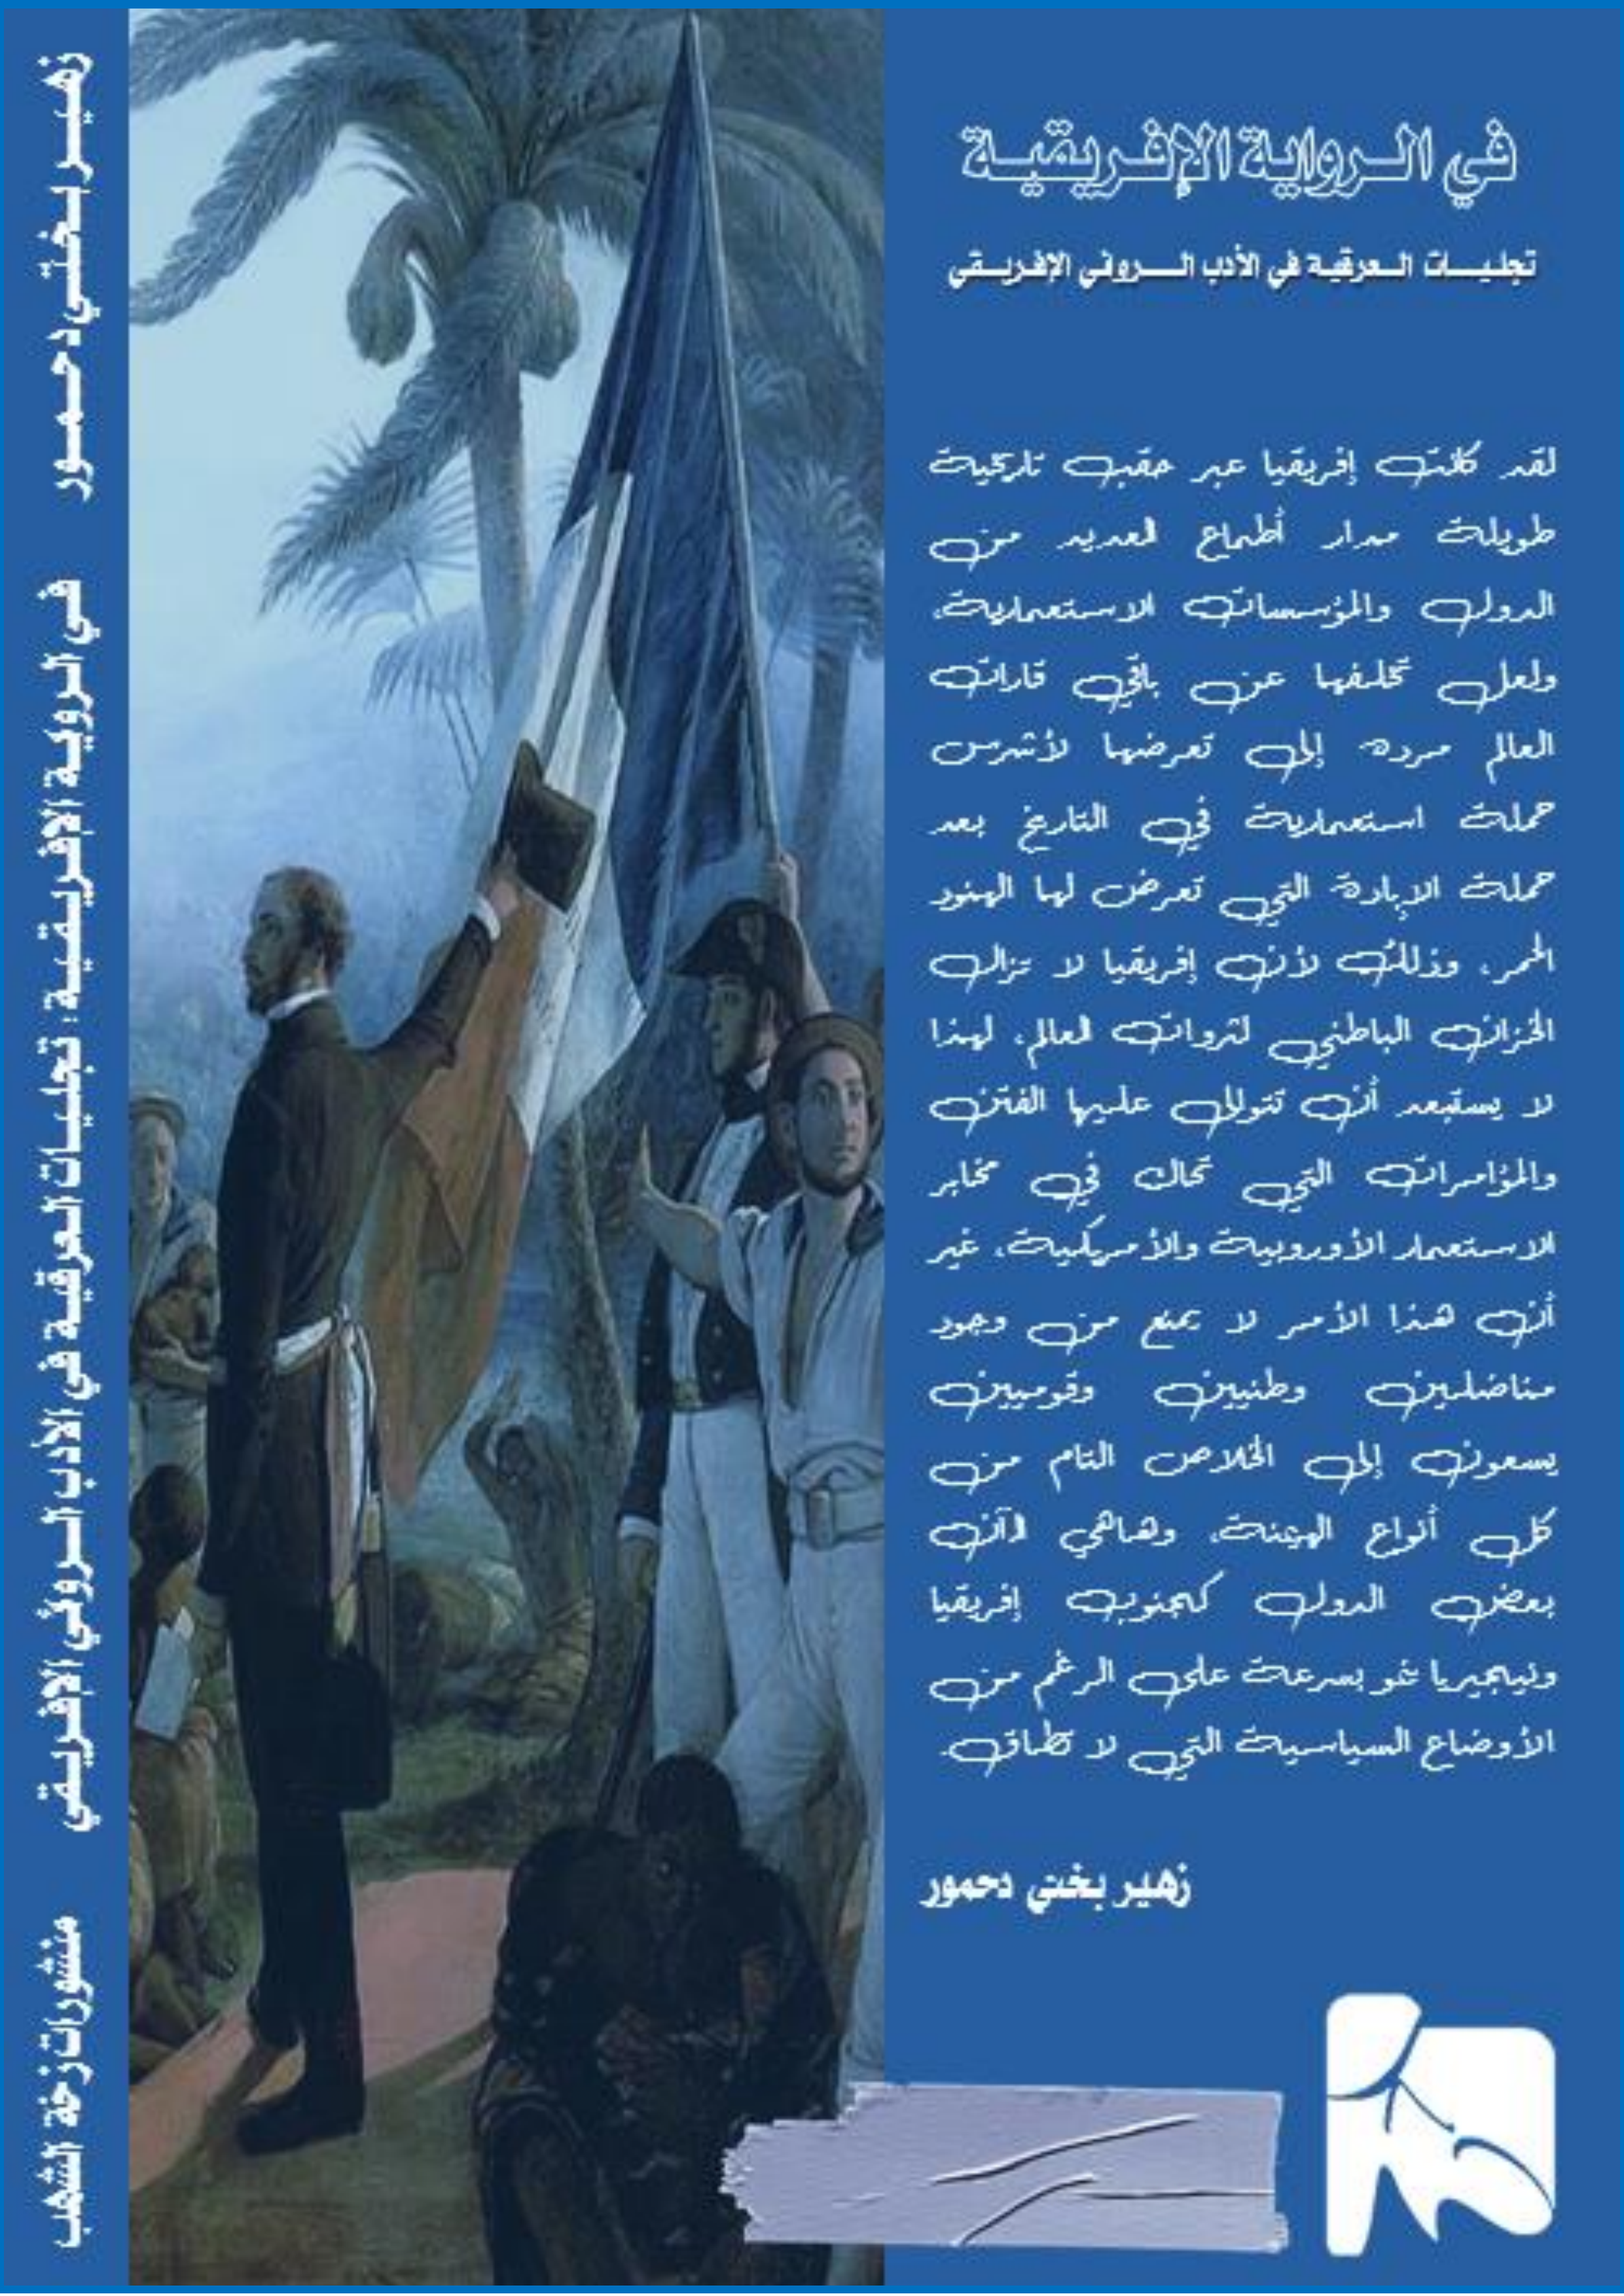 في الرواية الإفريقية
تجليات العرقية في الأدب الروئي الإفريقي
لقد كانت إفريقيا عبر حقب تاريخية
طويلة مدار أطماع العديد من
الدول والمؤسسات الاستعمارية،
ولعل تخلفها عن باقي قارات
العالم مرده إلى تعرضها لأشرس
حملة استعمارية في التاريخ بعد
حملة الإبادة التي تعرض لها الهنود
الحمر، وذلك لأن إفريقيا لا تزال
الخزان الباطني لثروات العالم، لهذا
لا يستبعد أن تتوالى عليها الفتن
والمؤامرات التي تحاك في مخابر
الاستعمار الأوروبية والأمريكية، غير
أن هذا الأمر لا يمنع من وجود
مناضلين وطنيين وقوميين
يسعون إلى الخلاص التام من
كل أنواع الهيمنة، وهاهي الآن
بعض الدول كجنوب إفريقيا
ونيجيريا تنمو بسرعة على الرغم من
الأوضاع السياسية التي لا تطاق.
زهير بختي دحمور
زهير بختي دحمور
في الروية الإفريقية: تجليات العرقية في الأدب الروئي الإفريقي
منشورات زخة الشهب